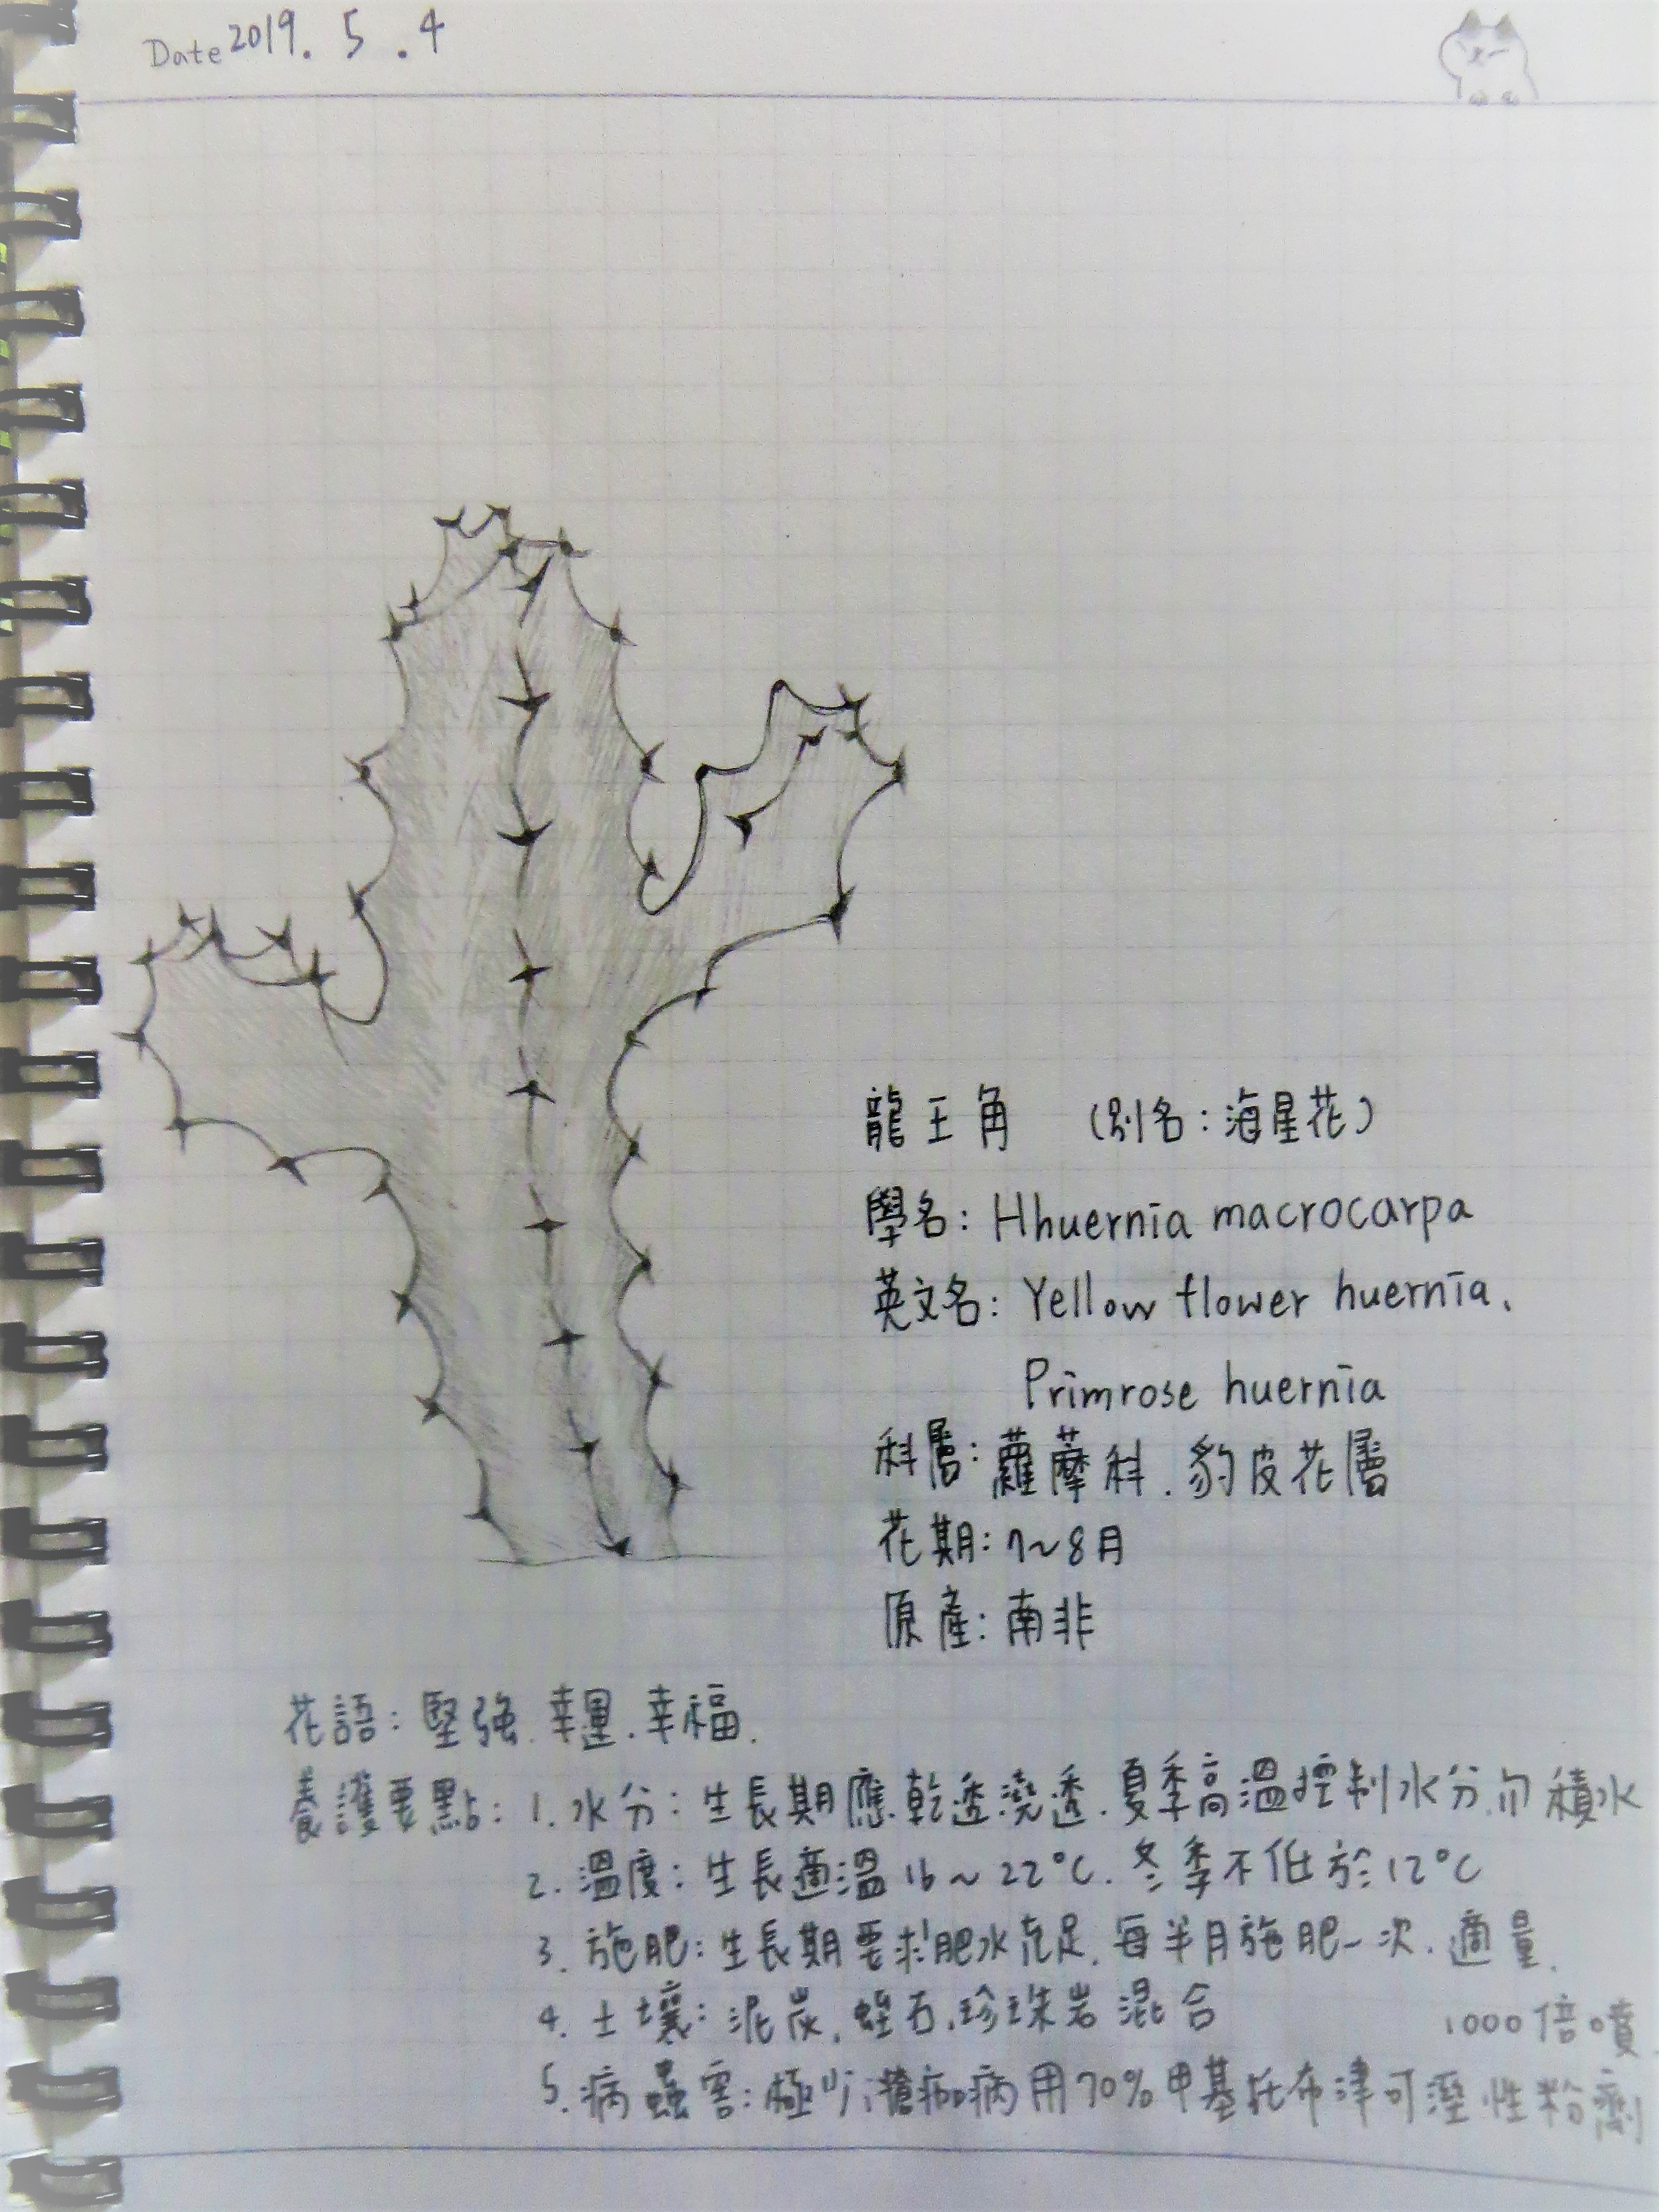 Date 2019. 5 . 4
龍王角 (別名:海星花)
學名: Hhuernia macrocarpa
英文名: Yellow flower huernia、
Primrose huernia
科屬: 蘿藦科、豹皮花屬
花期: 7~8月
原產: 南非
花語: 堅強、幸運、幸福、
養護要點: 1. 水分: 生長期應乾透澆透、夏季高溫控制水分、勿積水
2. 溫度: 生長適溫 16~22°C、冬季不低於12°C
3. 施肥: 生長期要求肥水充足、每半月施肥一次、適量、
4. 土壤: 泥炭、蛭石、珍珠岩混合
1000倍噴
5. 病蟲害: 極少、病用70%甲基托布津可溼性粉劑